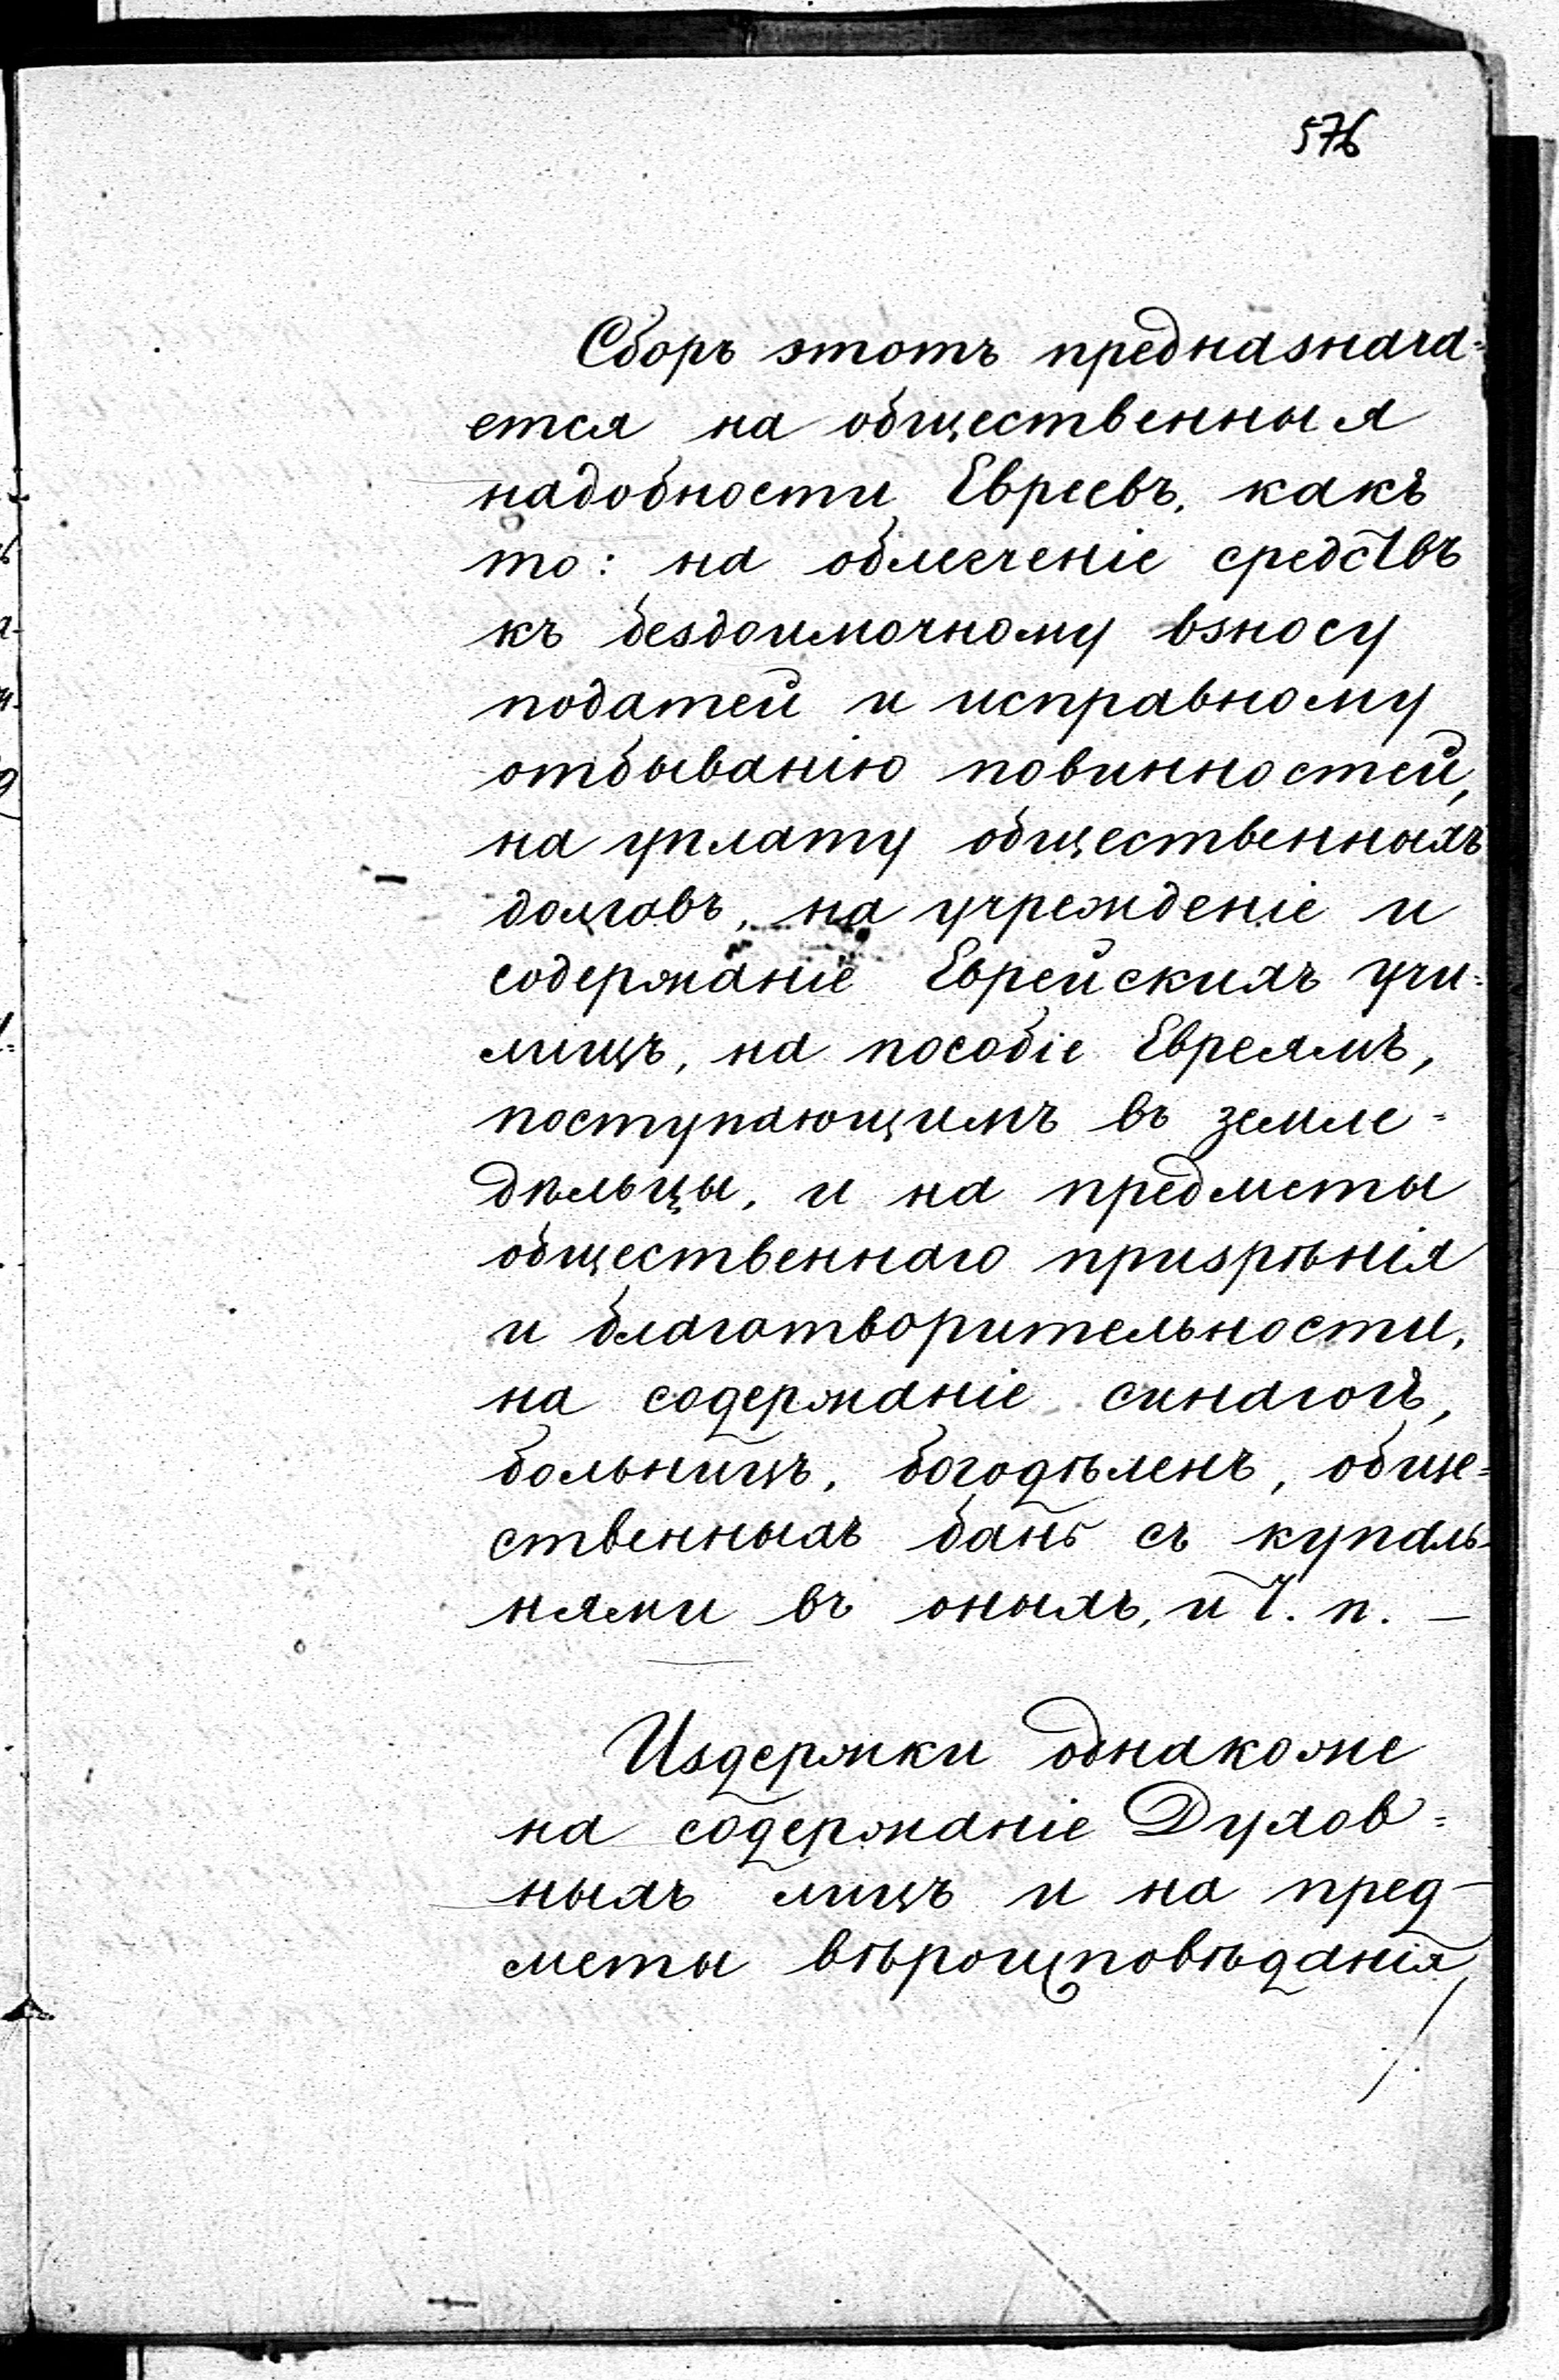 576
Сборъ этотъ предназнача=
ется на общественныя
надобности Евреевъ, какъ
то: на облегченіе средствъ
къ бездоимочному взносу
податей и исправному
отбыванію повинностей,
на уплату общественныхъ
долговъ, на учрежденіе и
содержаніе Еврейскихъ учи=
лищъ, на пособіе Евреямъ,
поступающимъ въ земле=
дѣльцы, и на предметы
общественнаго призрѣнія
и благотворительности,
на содержаніе синагогъ,
больницъ, богодѣленъ, обще=
ственныхъ бань съ купаль-
нями въ оныхъ, и т. п. —
Издержки однакоже
на содержаніе Духов=
ныхъ лицъ и на пред-
меты вѣроисповѣданія,